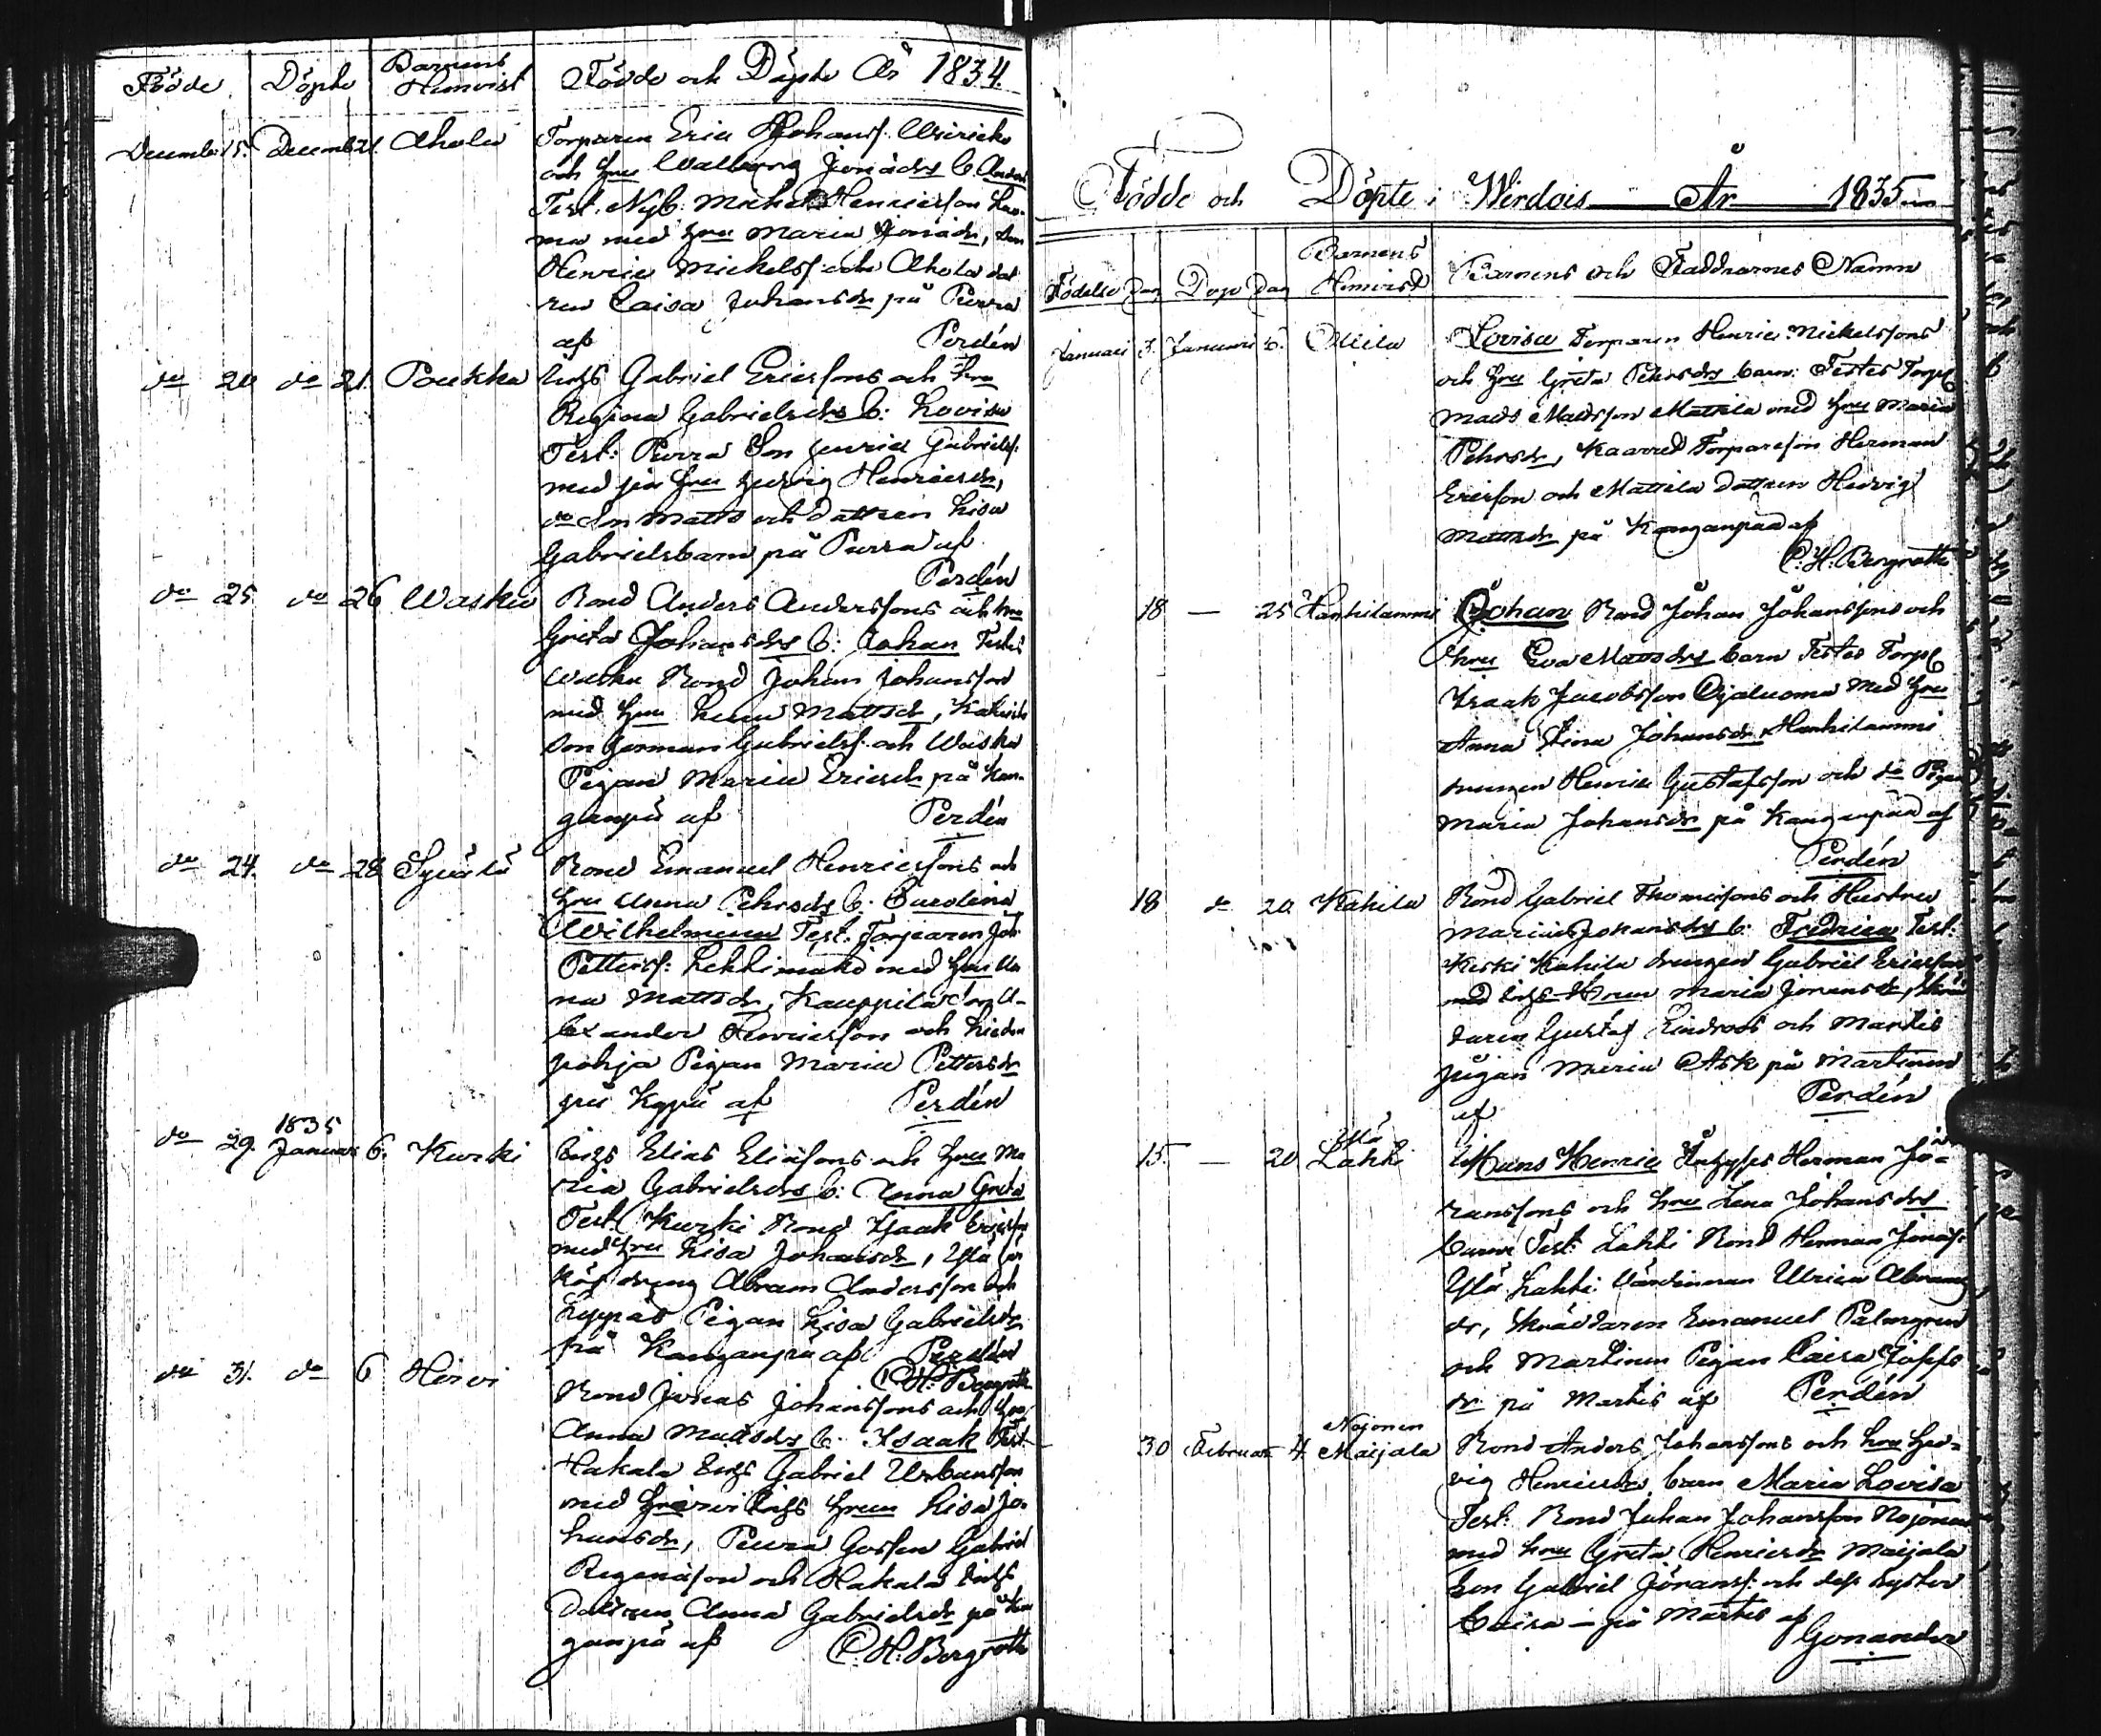 Födde Döpte Barnens Hemvist Födde och Döpte År 1834.
Decemb: 15. Decemb 21. Ahola Torparen Eric Johansf.
och hru Walborg Jonædrs b. Anders
Test. Nyb. Michel Henricsson
ma med hru Maria Jonædr,
Henric Michelsf. och Ahola dot
ren Caisa Johansdr på Purra
af Perdén
do 20 do 21. Poukka Inhs Gabriel Ericssons och hru
Regina Gabrielsdrs b: Lovisa
Test: Purra Son Henric Gabrielsf.
med sin hru Hedvig Henricsdr,
do Son Matts och dattren Lisa
Gabrielsbarn på Purra af
Perdén
do 25 do 26 Wasku Bond Anders Anderssons och hru
Greta Johansdrs b: Johan Testes
Wasku Bond Johan Johansson
med hru Lena Mattsdr,
Son Herman Gabrielsf. och Waska
Pigan Maria Ericsdr på Kan-
ganpä af Perdén
do 24. do 28 Bond Emanuel Henricssons och
hru Anna Pehrsdrs b. Carolina
Wilhelmina Test. Torparen Joh
Pettersf: Lehtimäki med hru An
na Mattsdr, Kauppila Son A-
lexander Henricsson och
pohja Pigan Maria Pettersdr
på af Perdén
do 29. 1835 Januari 6. Kurki Inhs Elias Eliæsons och hru Ma
ria Gabrielsdrs b: Anna Greta
Test. Kurki Bond Isaak Ericsson
med hru Lisa Johansdr, Ylä
dreng Abram Andersson och
Pigan Lisa Gabrielsdr
på Kanganpä af Perdén
C. H. Bergroth
do 31. do 6 Hirvi Bond Johans Johanssons och hru
Anna Mattsdrs b. Isaak Test.
Hakala Inhs Gabriel Urbansson
med Hirvi Inhs hrun Lisa Jo-
hansdr, Peura Gossen Gabriel
Reginæson och Hakala Inhs
dattren Anna Gabrielsdr på Kan
ganpä af C. H. Bergroth
Födde och Döpte i Wirdois År 1835
Födelse dag Döpe dag Barnens Hemvist Barnens och Faddrarnes Namn
Januari 3. Januari 6. Ollila Lovisa Torparen Henric Mickelssons
och hru Greta Pehrsdrs barn: Testes Torp
Mads Madsson Mattila med hru Maria
Pehrsdr, Kaarred Torpareson Herman
Ericsson och Mattila dattren Hedvig
Mattsdr på Kanganpää af
C. H. Bergroth
18 — 25 Hanhilammi Johan Bond Johan Johanssons och
hru Eva Mattsdrs barn Testes Torp
Isaak Jacobsson Ojaluoma med hru
Anna Stina Johansdr, Hanhilammi
drengen Henric Gustafsson och do Pigan
Maria Johansdr på Kanganpää af
Perdén
18 do 20 Kahila Bond Gabriel Thomæsons och Hustru
Maria Johansdrs b: Fredrica Test:
Keski Kahila drengen Gabriel Ericsson
med Inhs Hrun Maria Joransdr, skräd
daren Gustaf Lindroos och Martis
pigan Maria Ask på Martinen
af Perdén
15. — 20 Ylä Lahti Hans Henric Inhyses Herman Jö-
ranssons och hru Lena Johansdrs
barn Test: Lahti Bond Herman Jonæs.
Ylä Lahti Värdinnan Ulrica Abrams
dr, Skräddaren Emanuel Palmgren
och Martinen Pigan Caisa Josephs
dr på Martis af Perdén
30 Februari 4. Nojonen Maijala Bond Anders Johanssons och hru Hed-
vig Henricsdrs barn Maria Lovisa
Test: Bond Johan Johansson Nojonen
med hru Greta Henricsdr Maijala
Son Gabriel Jöransf. och dess syster
Caisa – på Martis af
Gonander